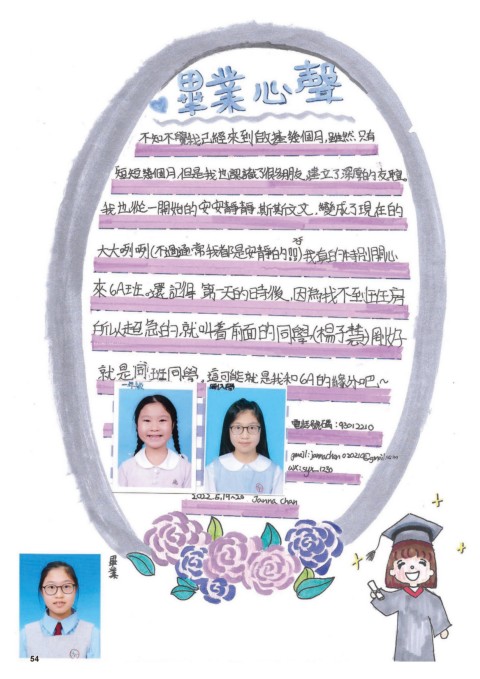 畢業心聲
不知不覺我已經來到啟基幾個月，雖然只有
短短幾個月，但是我也認識了很多朋友，建立了深厚的友誼。
我也從一開始的安安靜靜，斯斯文文，變成了現在的
大大咧咧(不過通常我都是安靜的!!)我真的特別開心
來6A班。還記得第一天的時後，因為找不到班房
所以超急的，就叫着前面的同學(楊子慧)剛好
就是同班同學，這可能就是我和6A的緣分吧~
一年級
電話號碼：93012210
Janna Chan
畢業
54